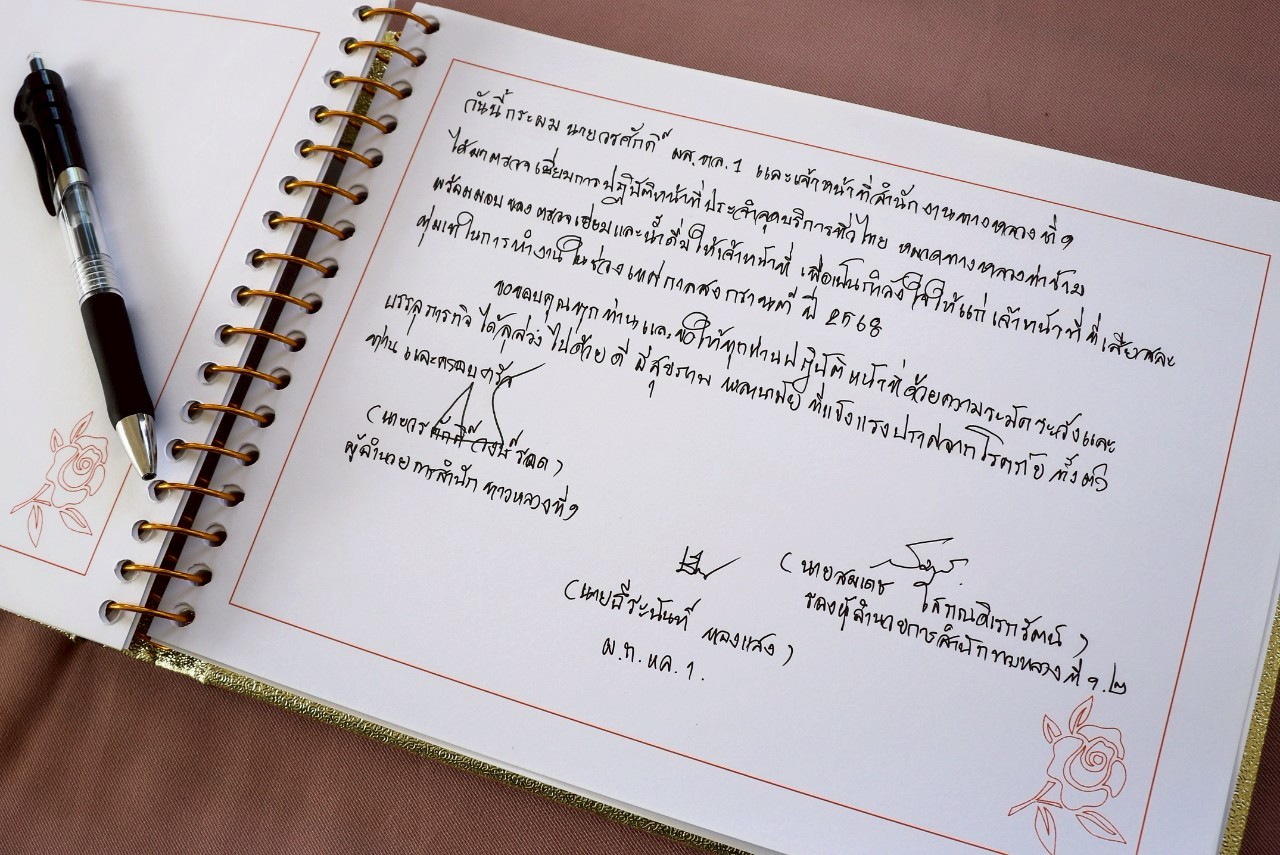 วันนี้กระผม นายวรศักดิ์ ผส.ทล.1 และเจ้าหน้าที่สำนักงานทางหลวงที่ ๑
ได้มาตรวจเยี่ยมการปฏิบัติหน้าที่ประจำจุดบริการทั่วไทย หมวดทางหลวงท่าข้าม
พร้อมมอบของตรวจเยี่ยมและน้ำดื่มให้เจ้าหน้าที่ เพื่อเป็นกำลังใจให้แก่เจ้าหน้าที่ที่เสียสละ
ทุ่มเทในการทำงานในช่วงเทศกาลสงกรานต์ ปี 2568
ขอขอบคุณทุกท่านและขอให้ทุกท่านปฏิบัติหน้าที่ด้วยความระมัดระวังและ
บรรลุภารกิจได้ลุล่วงไปด้วยดี มีสุขภาพ พลานามัยที่แข็งแรงปราศจากโรคภัย ทั้งตัว
ท่านและครอบครัว
(นายวรศักดิ์ วงษ์รอด)
ผู้อำนวยการสำนักทางหลวงที่ ๑
(นายสมเดช โสภณดิเรกรัตน์)
รองผู้อำนวยการสำนักทางหลวงที่ ๑.๒
(นายธีระนันท์ ทองแสง)
ผ.ท.ทล.1.